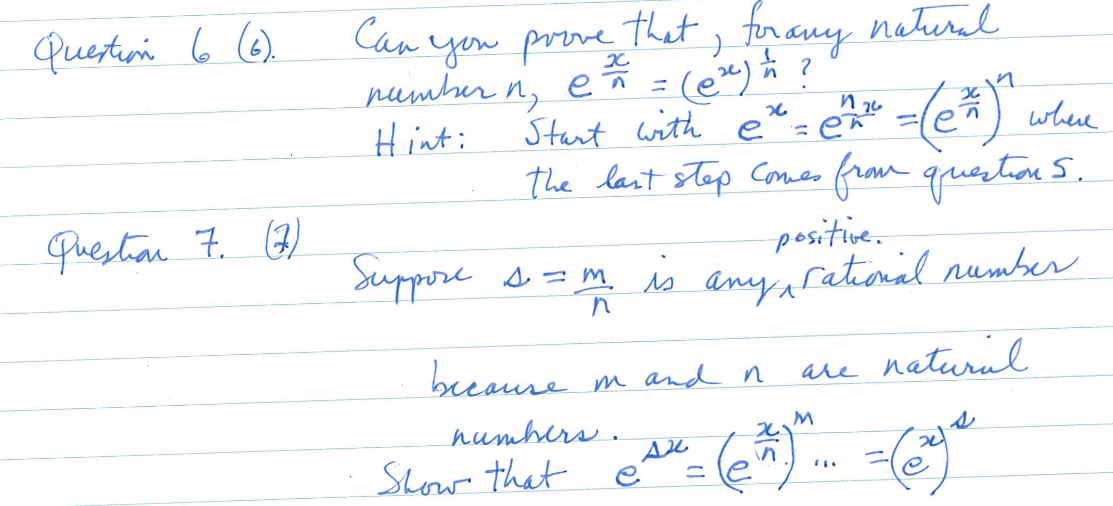 Question 6 (6). Can you prove that, for any natural
number n, e^{x/n} = (e^x)^{1/n} ?
Hint: Start with e^x = e^{\frac{n}{n}x} = (e^{x/n})^n where
the last step comes from question 5.
Question 7. (7)
positive.
Suppose s = m/n is any ‸ rational number
because m and n are natural
numbers.
Show that e^{sx} = (e^{x/n})^m ... = (e^x)^s